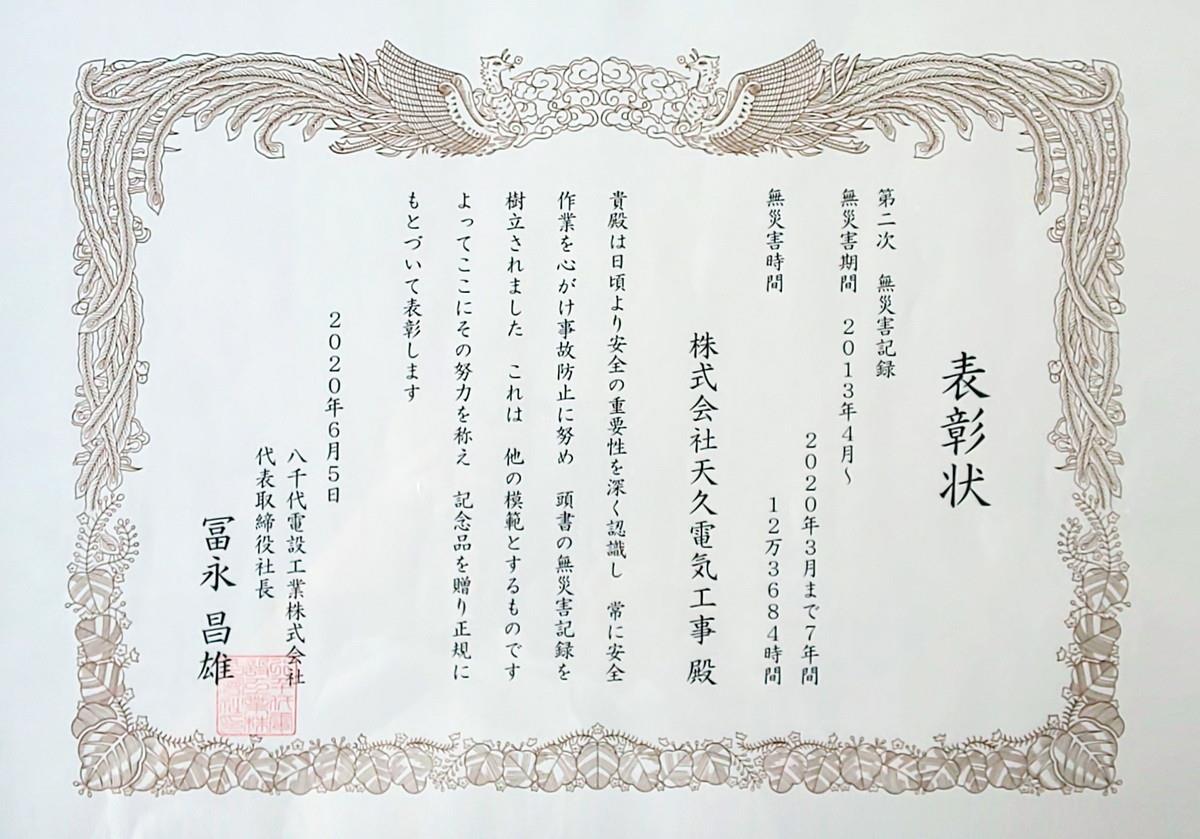 表彰状
第二次　無災害記録
無災害期間　２０１３年４月～
２０２０年３月まで７年間
無災害時間　１２万３６８４時間
株式会社天久電気工事 殿
貴殿は日頃より安全の重要性を深く認識し　常に安全
作業を心がけ事故防止に努め　頭書の無災害記録を
樹立されました　これは　他の模範とするものです
よってここにその努力を称え　記念品を贈り正規に
もとづいて表彰します
２０２０年６月５日
八千代電設工業株式会社
代表取締役社長
冨永 昌雄